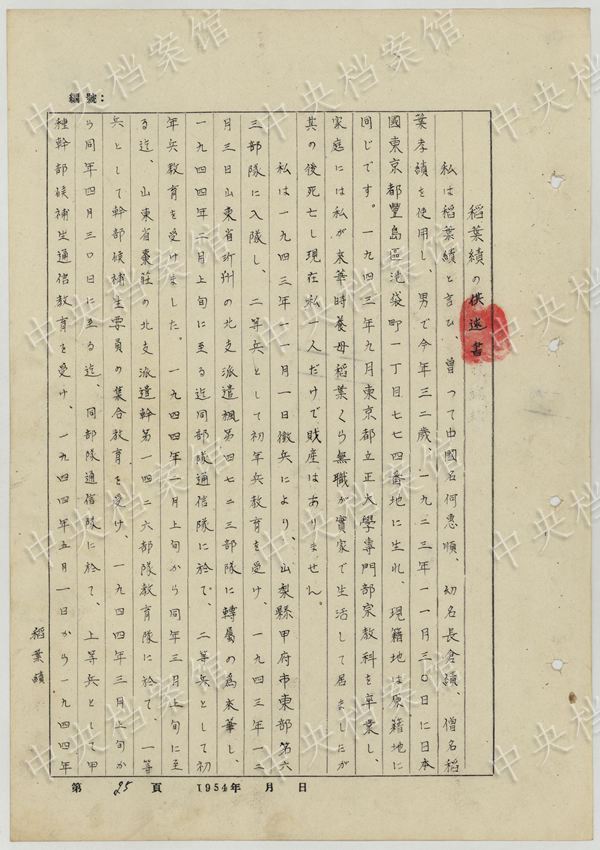 編號：
稻葉績の供述書
私は稻葉績と言ひ、曾つて中國名何惠順、幼名長倉績、僧名稻
葉孝績を使用し、男で今年三二歳、一九二三年一一月三〇日に日本
國東京都豐島區池袋町一丁目七七四番地に生れ、現籍地は原籍地に
同じです。一九四三年九月東京都立正大學專門部宗教科を卒業し、
家庭には私が來華時養母稻葉くら無職が實家で生活して居ましたが
其の後死亡し現在私一人だけで財産はありません。
私は一九四三年一一月一日徴兵により、山梨縣甲府市東部第六
三部隊に入隊し、二等兵として初年兵教育を受け、一九四三年一二
月三日山東省沂州の北支派遣楓第四七二三部隊に轉屬の爲來華し、
一九四四年二月上旬に至る迄同部隊通信隊に於て、二等兵として初
年兵教育を受けました。一九四四年二月上旬から同年三月上旬に至
る迄、山東省棗莊の北支派遣幹第一四二六部隊教育隊に於て、一等
兵として幹部候補生要員の集合教育を受け、一九四四年三月上旬か
ら同年四月三〇日に至る迄、同部隊通信隊に於て、上等兵として甲
種幹部候補生通信教育を受け、一九四四年五月一日から一九四四年
稻葉績
第 25 頁 1954年 月 日
中央档案馆